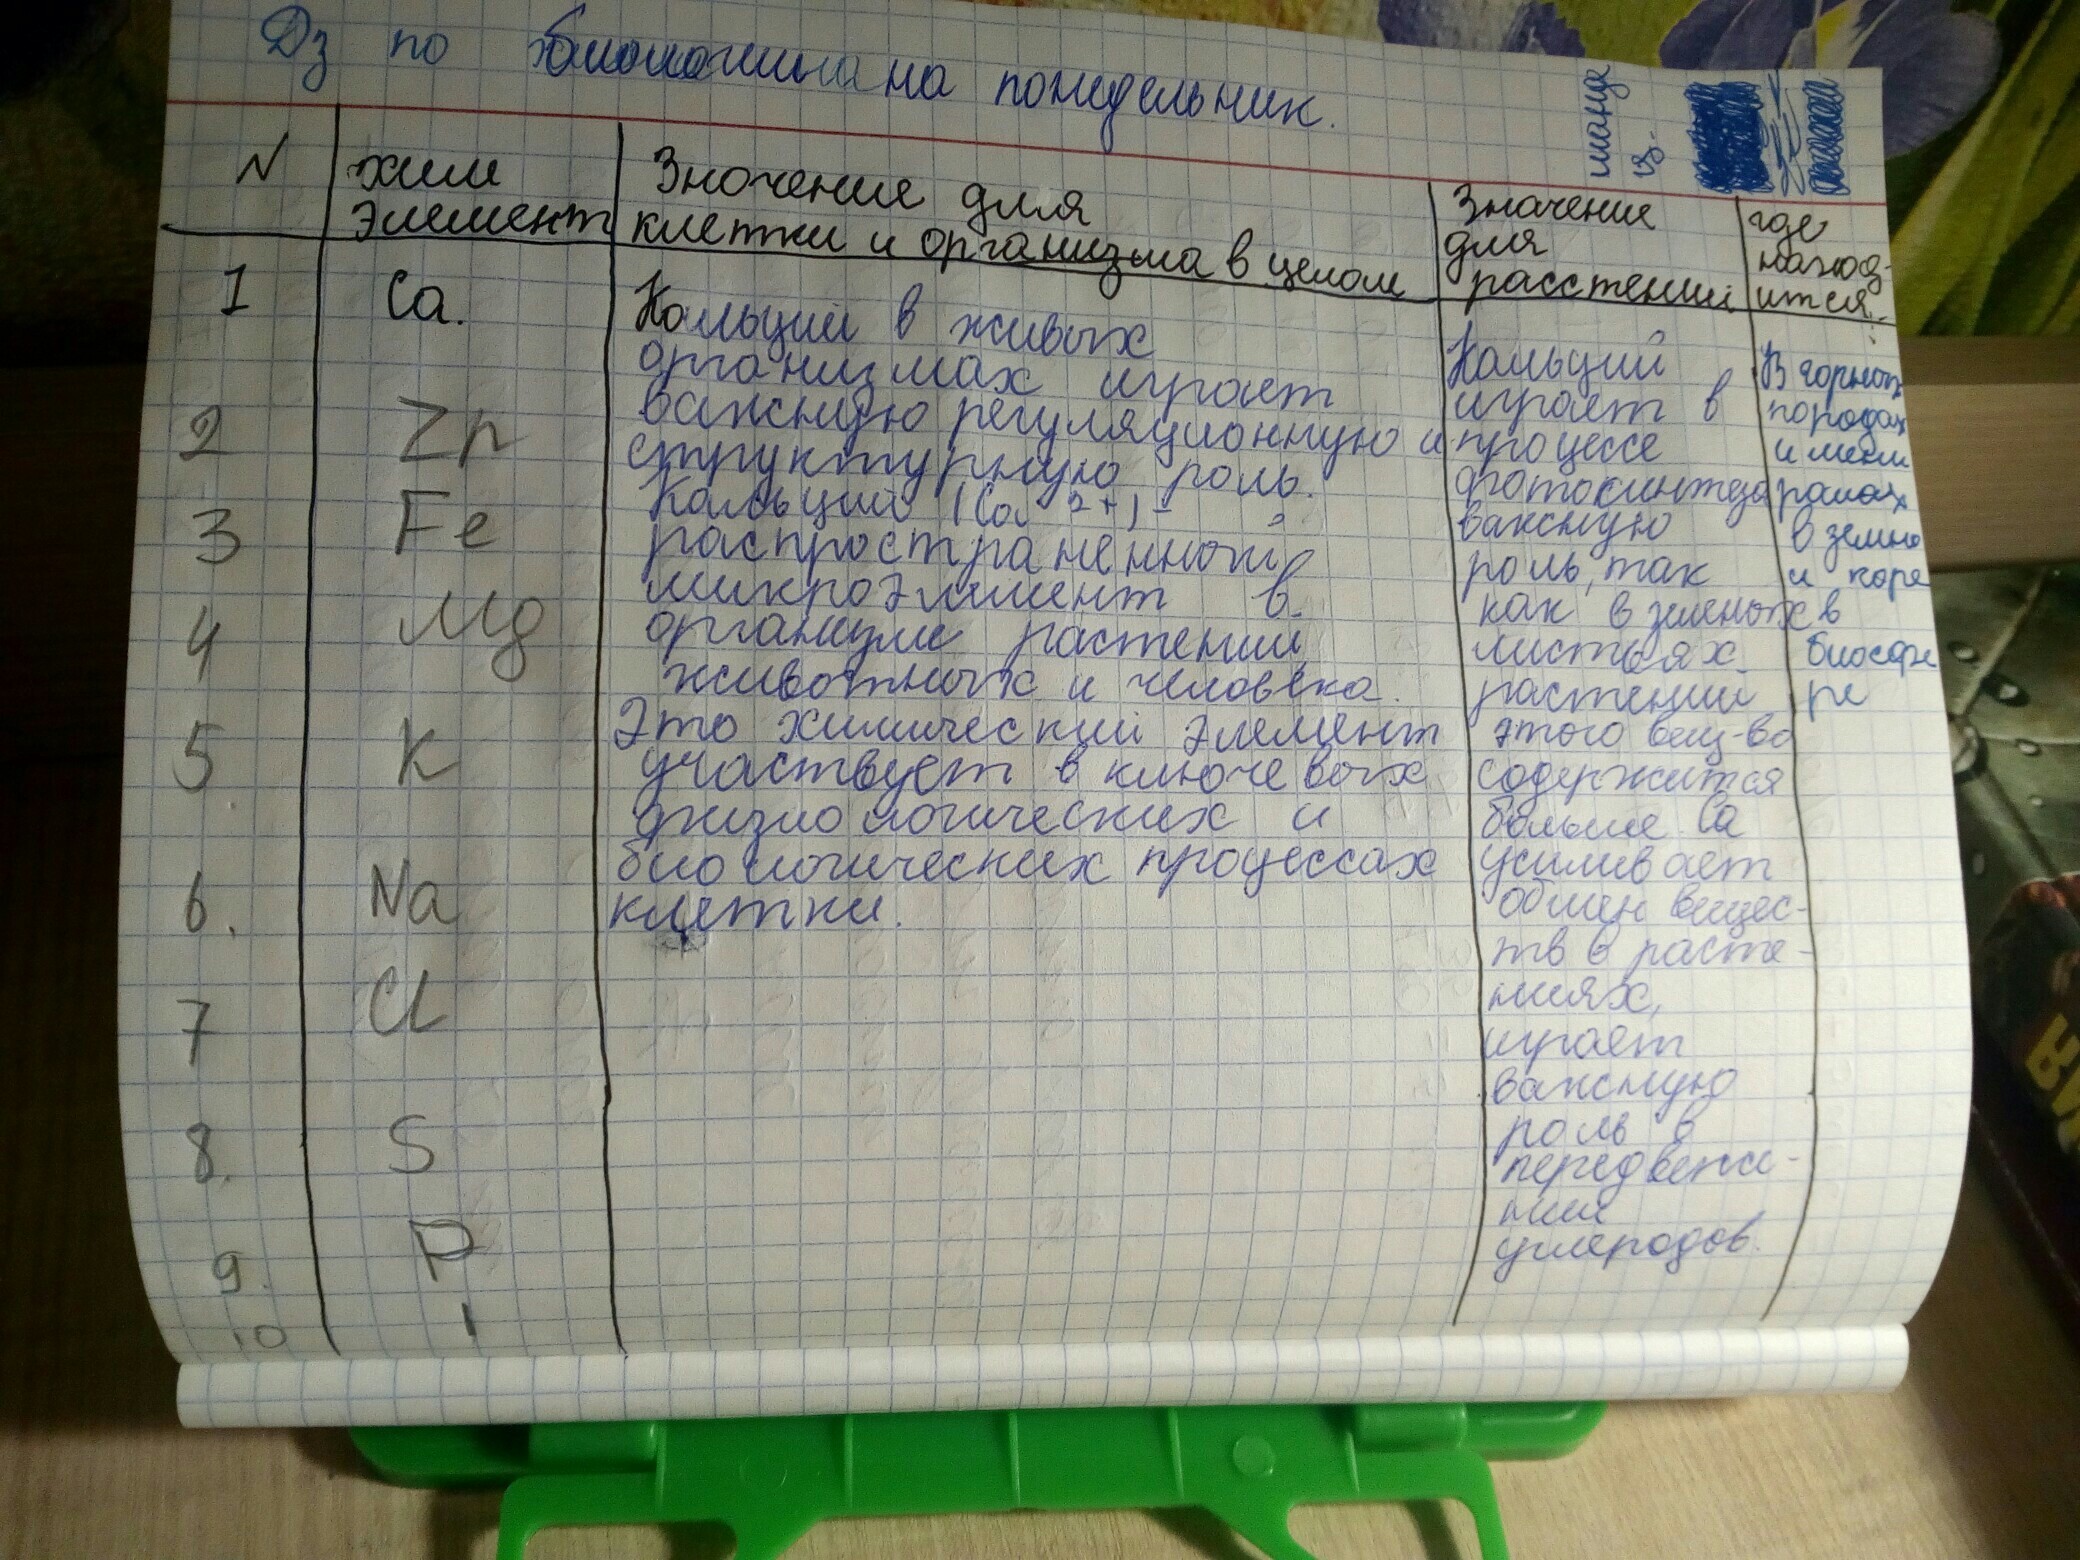 Дз по биологии на понедельник.
N
хим
элемент
Зночение для
клетки и организма в целом
Значение
для
расстений
где
наход-
ится.
1
Ca.
Кальций в живых
организмах играет
важную регуляционную и
структурную роль.
Кальций (Ca 2+) -
распространенный
микроэлемент в
организме растений
животных и человека.
Это химический элемент
участвует в ключевых
физиологических и
биологических процессах
клетки.
Кальций
играет в
процессе
фотосинтеза
важную
роль, так
как в зеленых
листьях
растений
этого вещ-ва
содержится
больше. Ca
усиливает
обмен вещес-
тв в расте-
ниях,
играет
важную
роль в
передвеже-
нии
углеродов.
В горных
породах
и мене
ралах
в земно
и коре
в
биосфе
ре
2
Zn
3
Fe
4
Mg
5
K
6.
Na
7
Cl
8.
S
9.
P
10
I